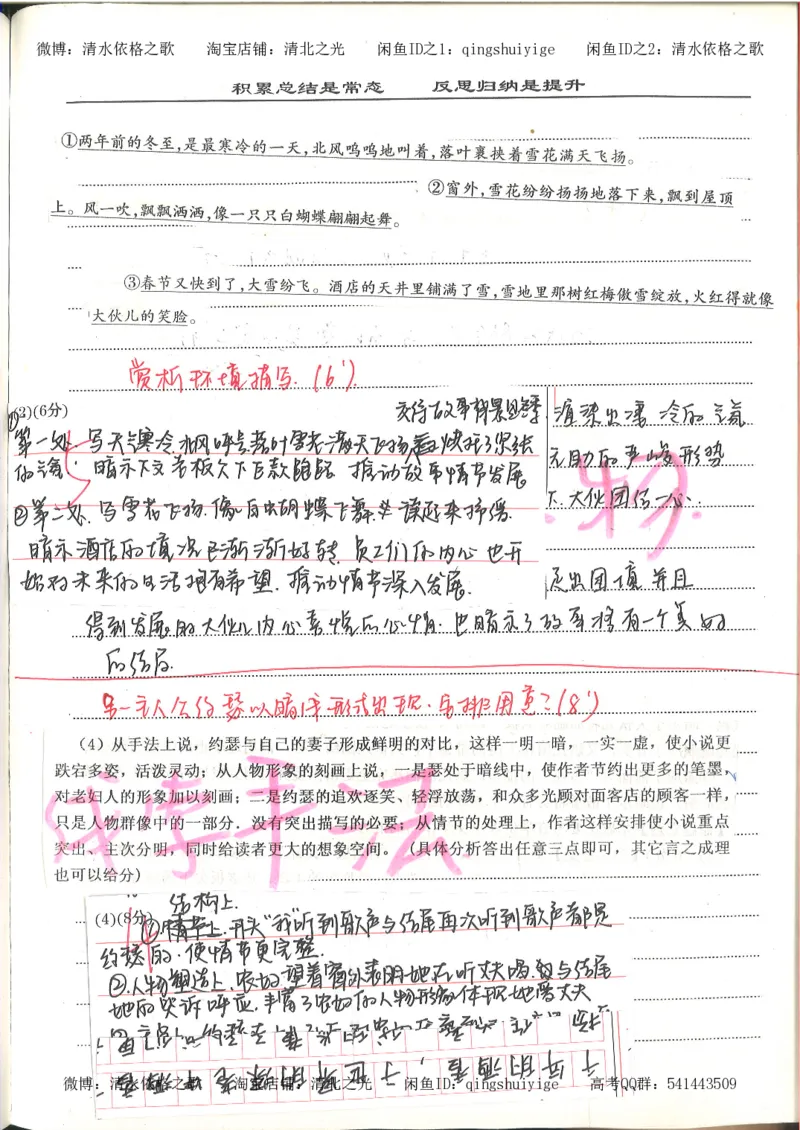 微博：清水依格之歌　　淘宝店铺：清北之光　　闲鱼ID之1：qingshuiyige　　闲鱼ID之2：清水依格之歌
积累总结是常态　　反思归纳是提升
①两年前的冬至,是最寒冷的一天,北风呜呜地叫着,落叶裹挟着雪花满天飞扬。
②窗外,雪花纷纷扬扬地落下来,飘到屋顶
上。风一吹,飘飘洒洒,像一只只白蝴蝶翩翩起舞。
③春节又快到了,大雪纷飞。酒店的天井里铺满了雪,雪地里那树红梅傲雪绽放,火红得就像
大伙儿的笑脸。
赏析环境描写.(6')
(2)(6分)
交待故事背景
渲染出凄冷的气氛
①第一处.写天气寒冷,北风呼号落叶雪花满天飞扬
的气氛.暗示下文老板欠下巨款跑路.推动故事情节发展
无助的严峻形势
下.大伙团结一心.
②第二处.写雪花飞扬.像白虫胡蝶飞舞.
暗示酒店的境况已渐渐好转.员工们的内心也开
始对未来的生活抱有希望.推动情节深入发展.
走出困境并且
得到发展的大伙儿内心喜悦的心情.也暗示了故事将有一个美好
的结局.
另一主人公约瑟以暗线形式出现.安排用意?(8')
（4）从手法上说，约瑟与自己的妻子形成鲜明的对比，这样一明一暗，一实一虚，使小说更
跌宕多姿，活泼灵动；从人物形象的刻画上说，一是瑟处于暗线中，使作者节约出更多的笔墨，
对老妇人的形象加以刻画；二是约瑟的追欢逐笑、轻浮放荡，和众多光顾对面客店的顾客一样，
只是人物群像中的一部分．没有突出描写的必要；从情节的处理上，作者这样安排使小说重点
突出、主次分明，同时给读者更大的想象空间。（具体分析答出任意三点即可，其它言之成理
也可以给分）
结构上.
(4)(8分)
①情节上.开头"我"听到歌声与结尾再次听到歌声都是
约瑟的.使情节更完整.
②.人物塑造上.农妇望着窗外表明她在听丈夫唱歌与结尾
她的哭诉呼应.丰富了农妇的人物形象体现她
微博：清水依格之歌　　淘宝店铺：清北之光　　闲鱼ID：qingshuiyige　　高考QQ群：541443509